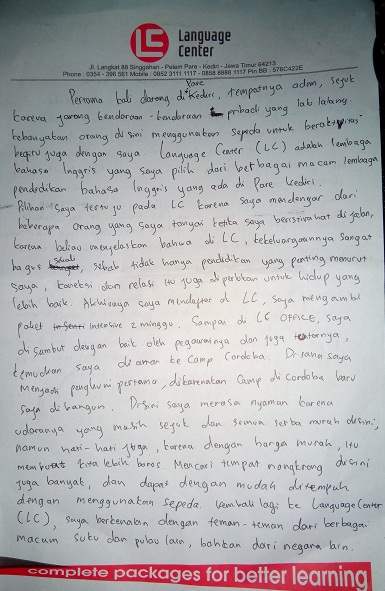 LC
Language
Center
Jl. Langkat 88 Singgahan - Pelem Pare - Kediri - Jawa Timur 64213
Phone : 0354 - 396 561 Mobile : 0852 3111 1117 - 0858 8888 1117 Pin BB : 576C422E
Pertama kali datang di Pare Kediri, tempatnya adem, sejuk
karena jarang kendaraan - kendaraan pribadi yang lalu lalang.
kebanyakan orang disini menggunakan sepeda untuk beraktifitas.
begitu juga dengan saya Language Center (LC) adalah lembaga
bahasa Inggris yang saya pilih dari berbagai macam lembaga
pendidikan bahasa Inggris yang ada di Pare Kediri.
Pilihan saya tertuju pada LC karena saya mendengar dari
beberapa orang yang saya tanyai ketika saya beristirahat di jalan,
karena beliau menjelaskan bahwa di LC, kekeluargaannya sangat
bagus sekali, sebab tidak hanya pendidikan yang penting menurut
saya, koneksi dan relasi itu juga diperlukan untuk hidup yang
lebih baik. Akhirnya saya mendaftar di LC, saya mengambil
paket intensive 2 minggu. Sampai di LC OFFICE, saya
disambut dengan baik oleh pegawainya dan juga tutornya,
kemudian saya diantar ke Camp Cordoba. Disana saya
Menjadi penghuni pertama, dikarenakan Camp di cordoba baru
saja dibangun. Disini saya merasa nyaman karena
udaranya yang masih sejuk dan semua serba murah disini,
namun hati-hati juga, karena dengan harga murah, itu
membuat kita lebih boros. Mencari tempat nongkrong disini
juga banyak, dan dapat dengan mudah ditempuh
dengan menggunakan sepeda. kembali lagi ke Language Center
(LC), saya berkenalan dengan teman-teman dari berbagai
macam suku dan pulau lain, bahkan dari negara lain.
complete packages for better learning